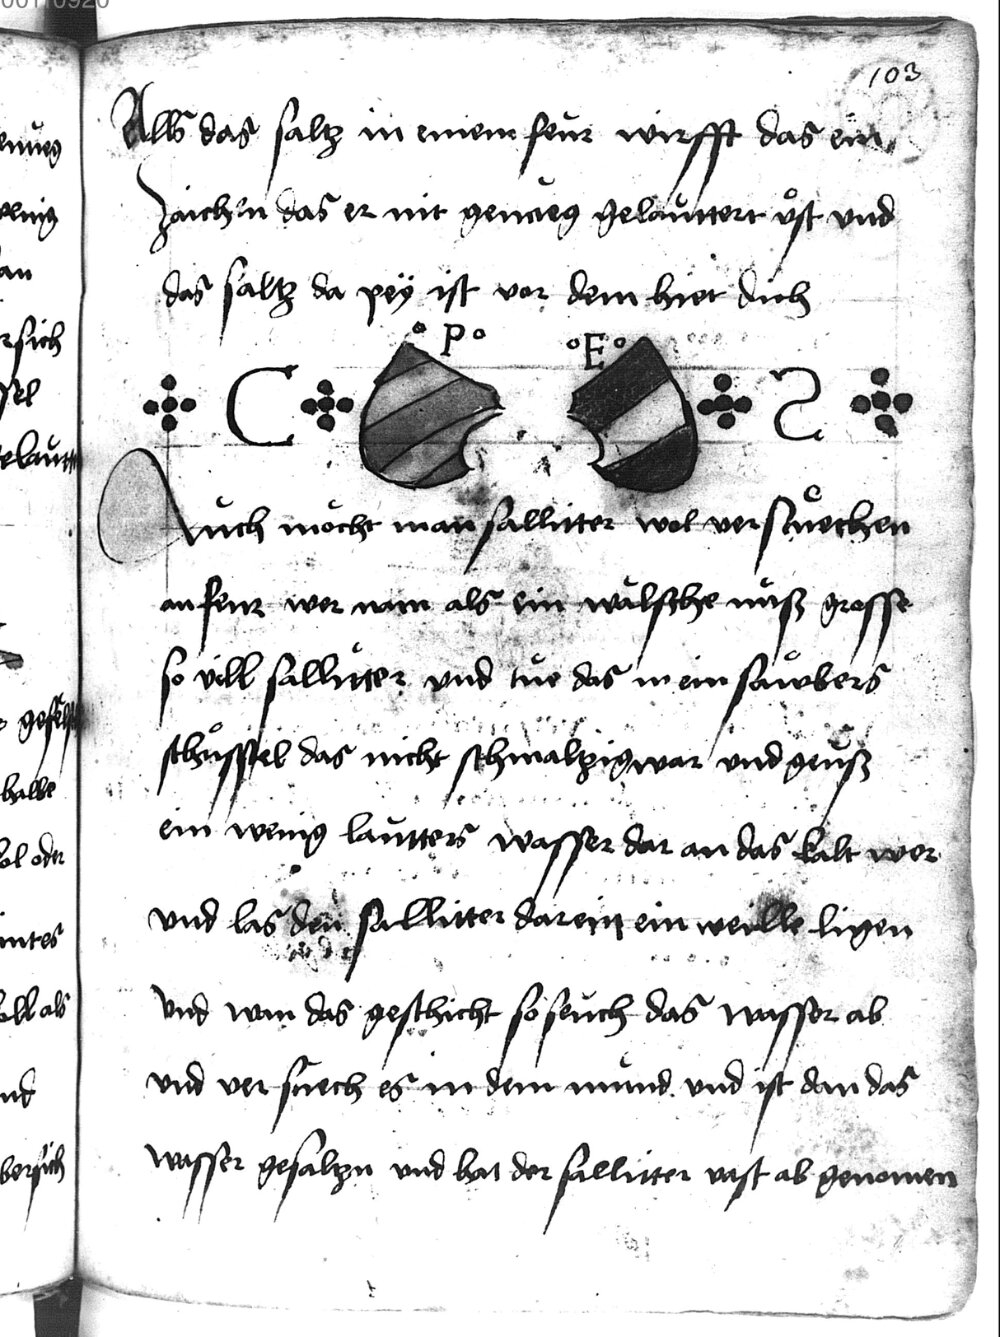 103
Alls das saltz in einem feür wirfft das ein
zaich'n das er nit genueg gelauttert ist und
das saltz da pey ist vor dem hiet dich
P E
C S
Auch möcht man salliter wol versuechen
an feur wer nam als ein wälsche nuss grosse
so vill salliter und tue das in ein sawbers
schüssel das nicht schmaltzig war und geuss
ein wenig lautters wasser dar an das kalt wer
und las den salliter darein ein weille ligen
und wan das geschicht so seich das wasser ab
und versuech es in dem mund und ist dan das
wasser gesaltzn und hat der salliter vast ab genomen